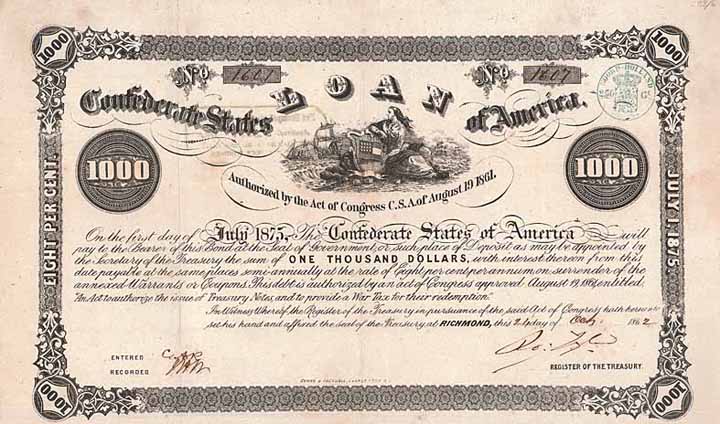 1000 1000
Nº 1607 Nº 1607
LOAN
Confederate States of America.
Authorized by the Act of Congress C.S.A. of August 19 1861.
1000 1000
EIGHT PER CENT.
JULY 1875
On the first day of July 1875, The Confederate States of America will
pay to the Bearer of this Bond at the Seat of Government, or such place of Deposit as may be appointed by
the Secretary of the Treasury the sum of ONE THOUSAND DOLLARS, with interest thereon from this
date payable at the same places semi-annually at the rate of Eight per cent per annum on surrender of the
annexed Warrants or Coupons. This debt is authorized by an act of Congress approved August 19, 1861, entitled.
"An Act to authorize the issue of Treasury Notes, and to provide a War Tax for their redemption."
In Witness Whereof, the Register of the Treasury in pursuance of the said Act of Congress hath hereun
set his hand and affixed the Seal of the Treasury at RICHMOND, this 24 day of 1862
ENTERED
RECORDED
REGISTER OF THE TREASURY.
1000 1000